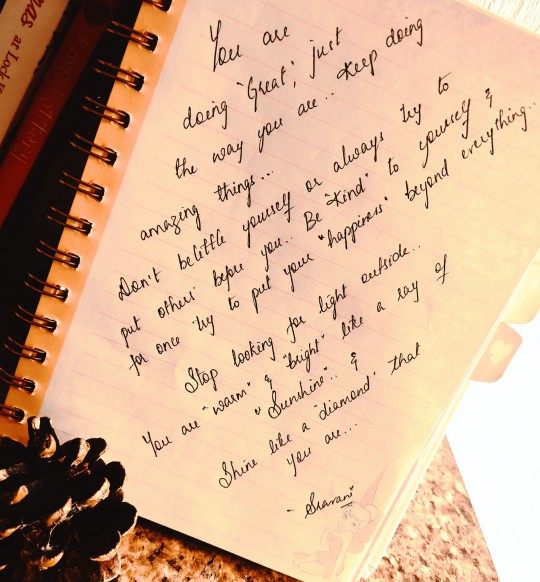 You are
doing "Great", just
the way you are... Keep doing
amazing things...
Don't belittle yourself or always try to
put others before you... Be "Kind" to yourself &
for once try to put your "happiness" beyond everything...
Stop looking for light outside...
You are "warm" & "bright" like a ray of
"Sunshine".. &
Shine like a "diamond" that
you are...
- Sravani
at Lock